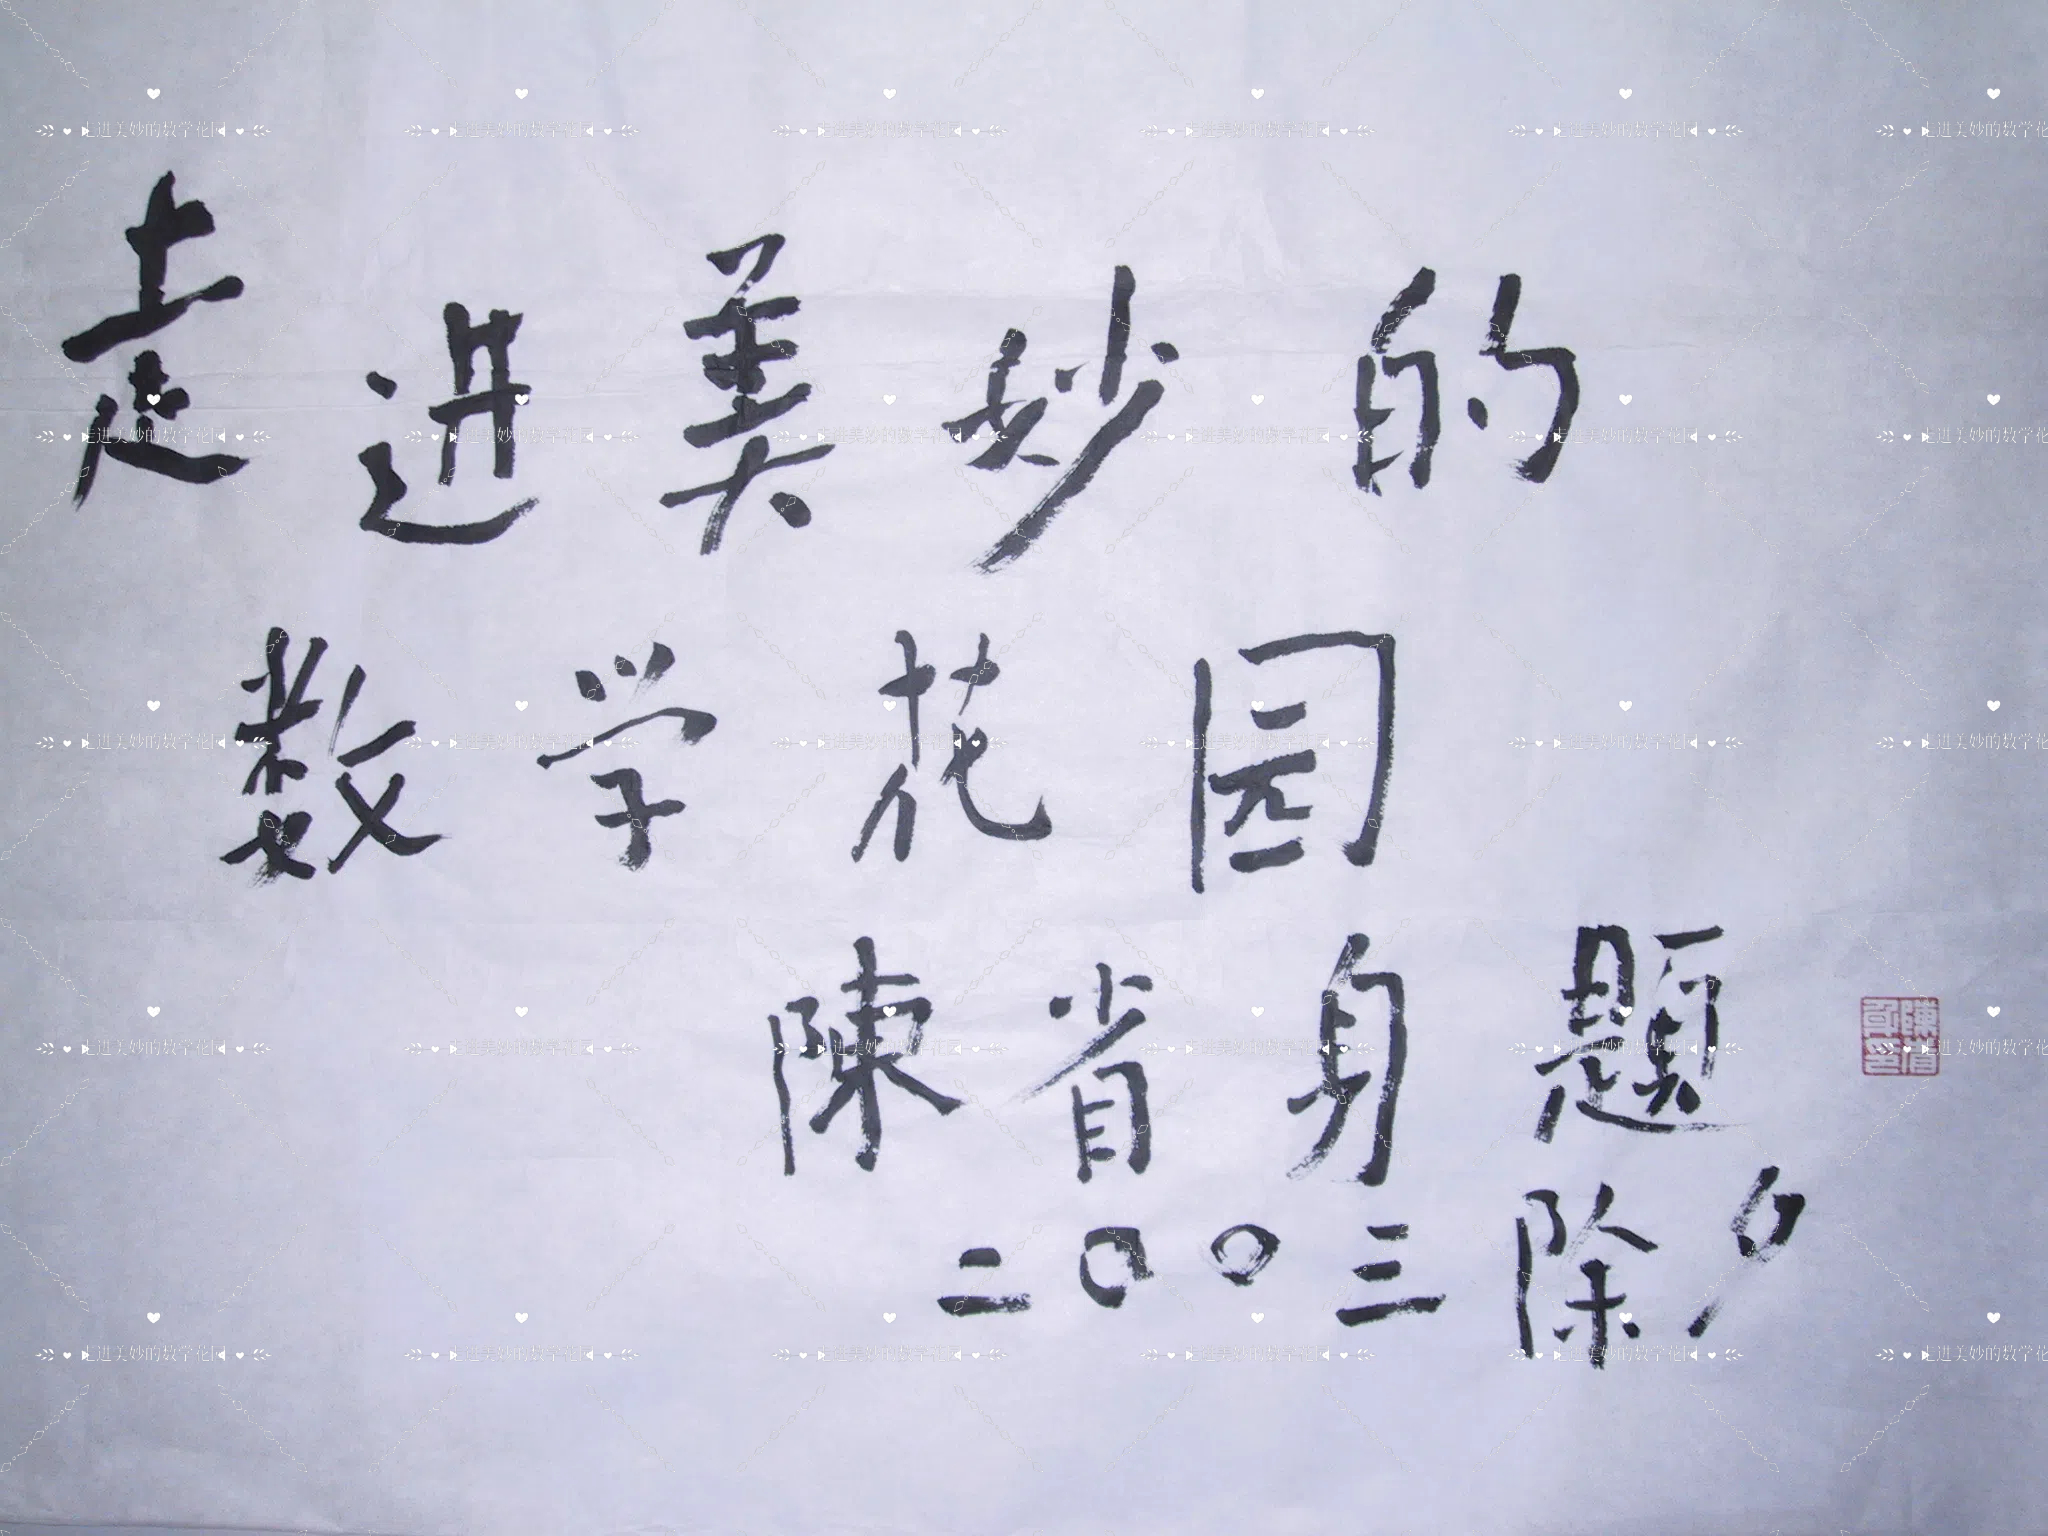 走进美妙的
数学花园
陳省身题
二〇〇三除夕
走进美妙的数学花园